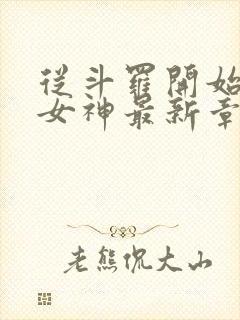 從斗羅開始
女神最新章
老熊侃大山